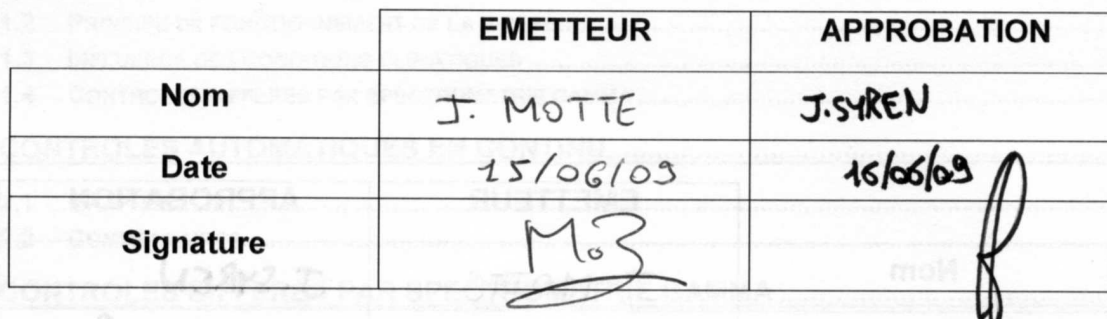 EMETTEUR APPROBATION
Nom J. MOTTE J.SYREN
Date 15/06/09 16/06/09
Signature